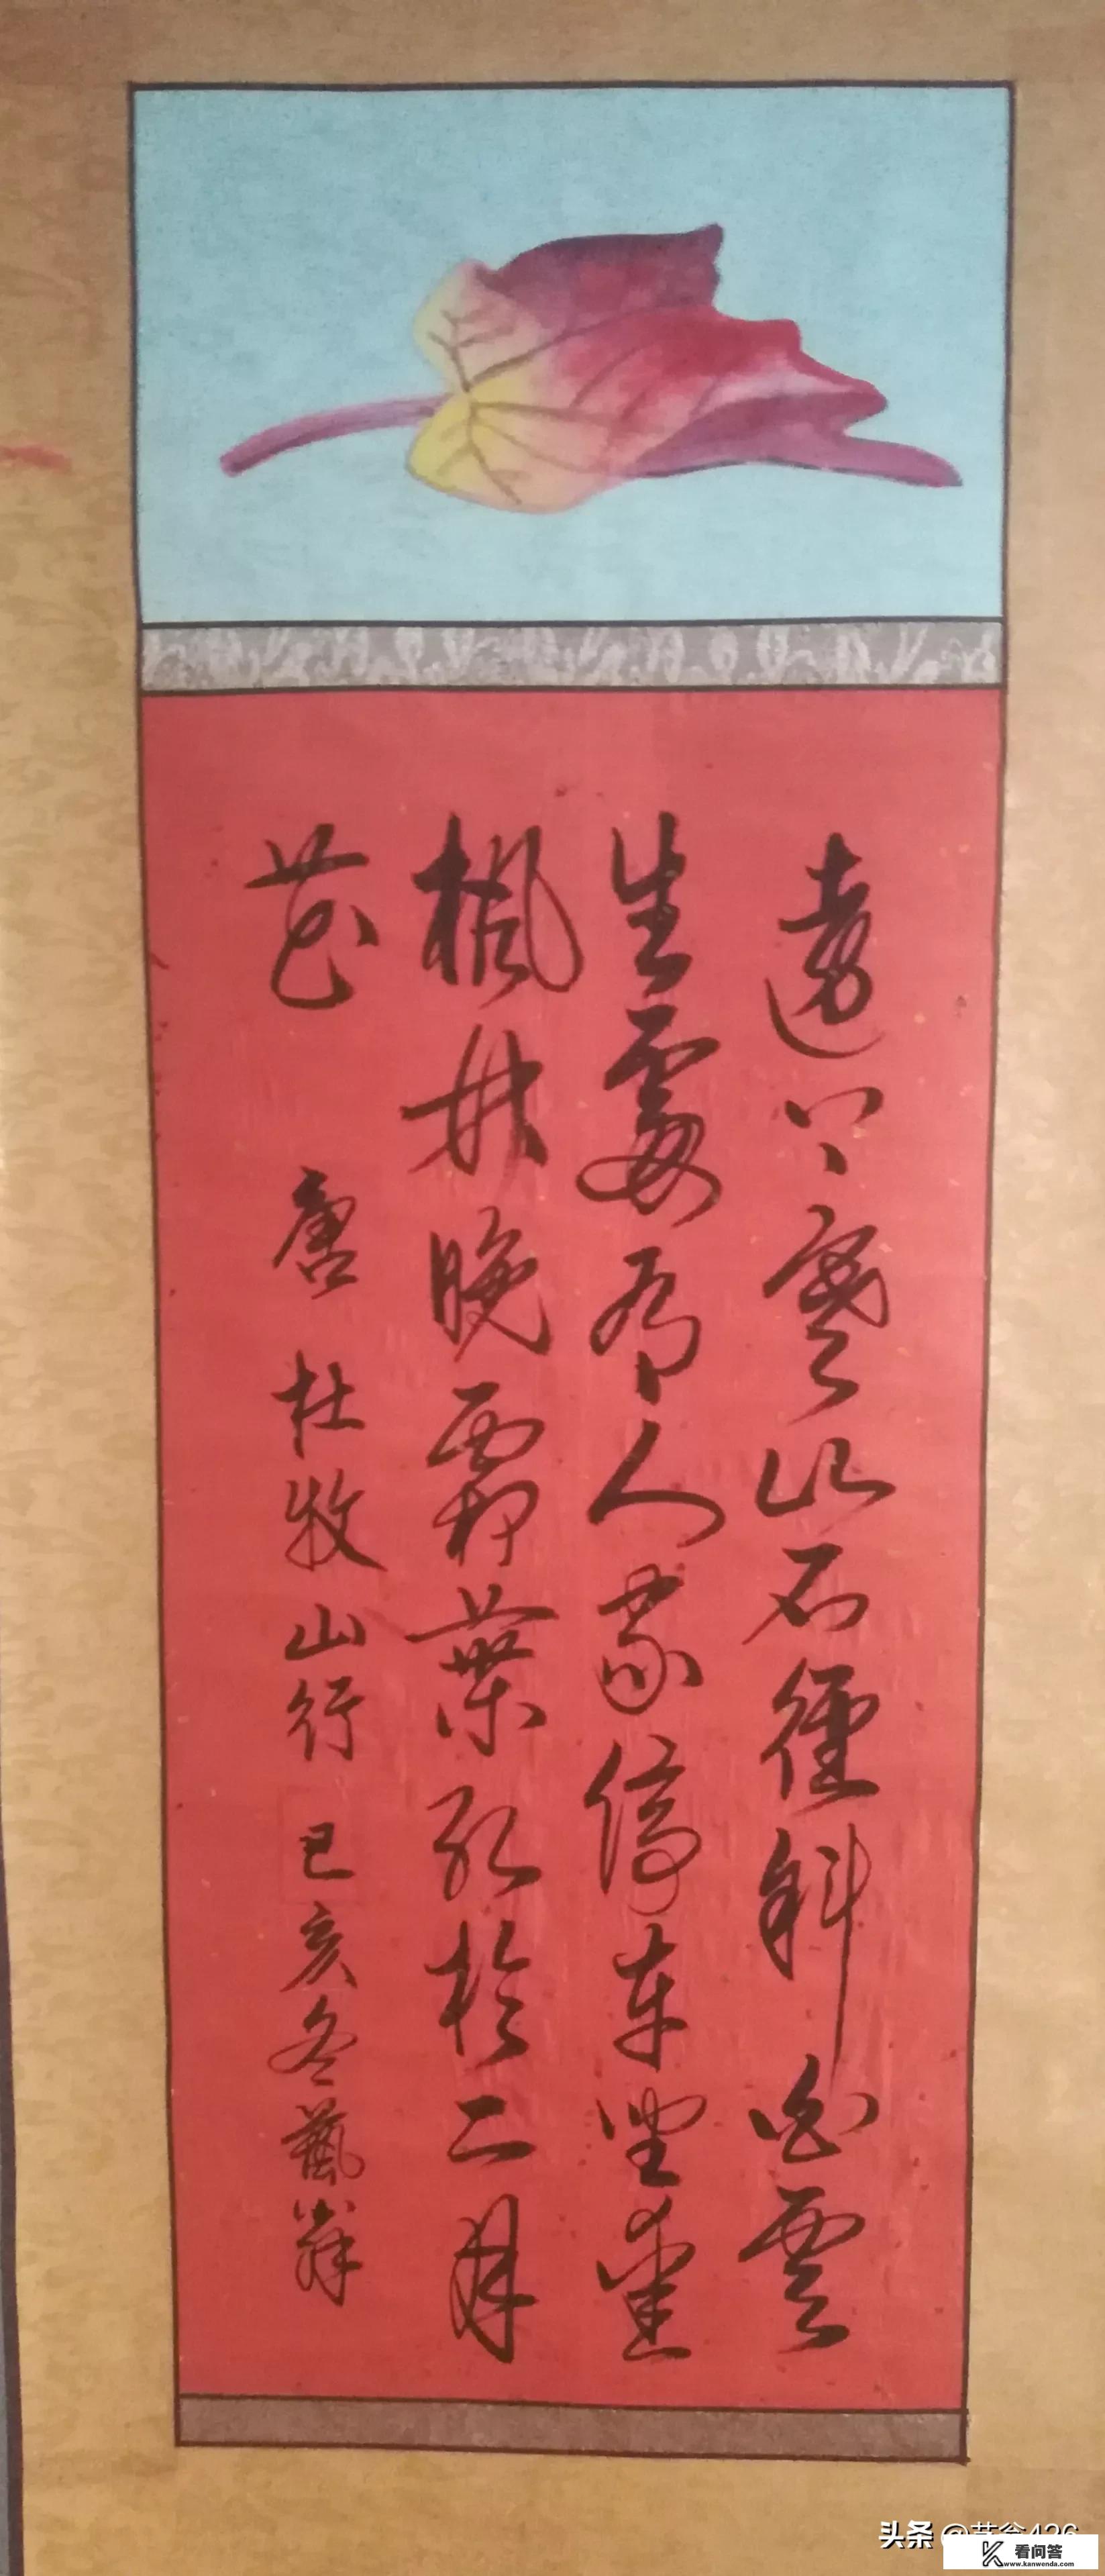 遠上寒山石徑斜白雲
生處有人家停車坐愛
楓林晚霜葉紅於二月
花 唐 杜牧山行 己亥冬藝翁
头条 @艺翁426
看问答
www.kanwenda.com